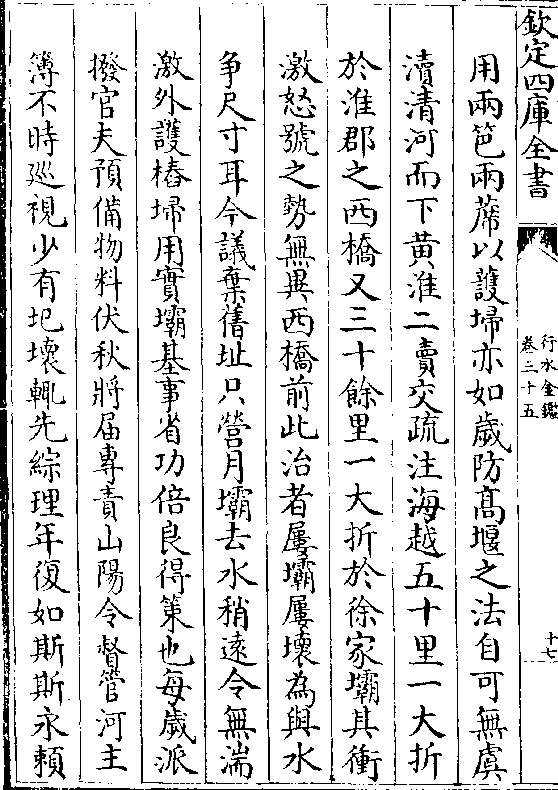 欽定四庫全書
行水金鑑
卷三十五
十七
用兩笆兩蓆以護埽亦如歲防髙堰之法自可無虞
瀆清河而下黄淮二賣交疏注海越五十里一大折
於淮郡之西橋又三十餘里一大折於徐家壩其衝
激怒號之勢無異西橋前此治者屢壩屢壞為與水
爭尺寸耳今議棄舊址只營月壩去水稍遠令無湍
激外護樁埽用實壩基事省功倍良得策也每歲派
撥官夫預備物料伏秋將届專責山陽令督管河主
簿不時廵視少有圮壞輒先綜理年復如斯斯永賴